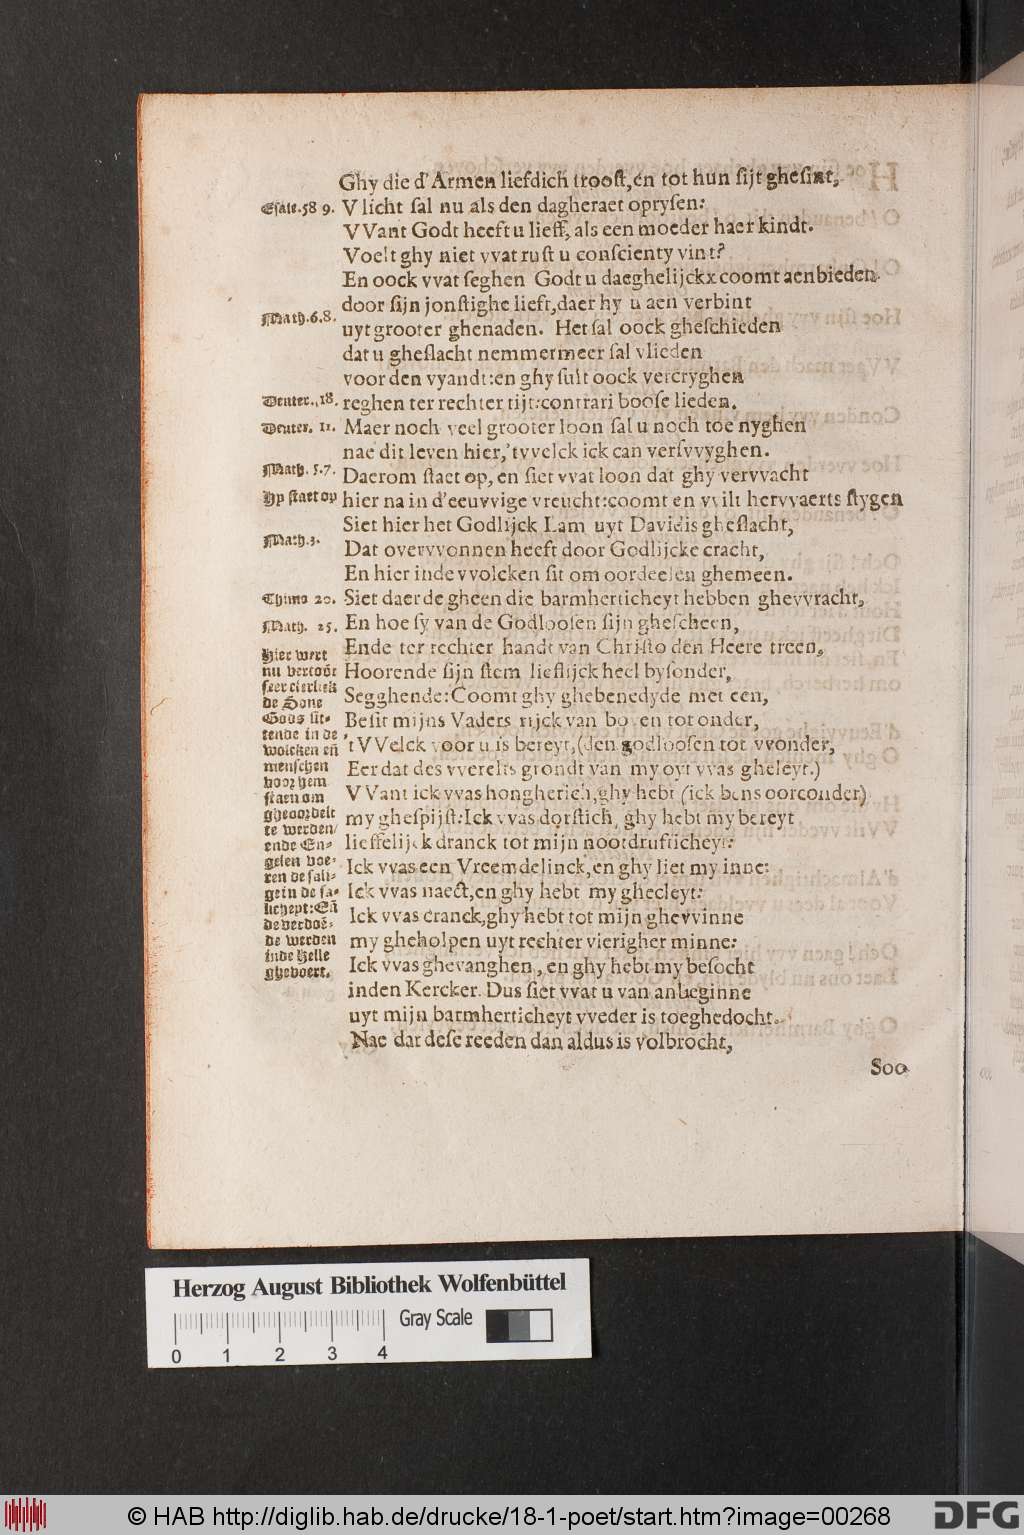 Ghy die d'Armen liefdich troost, en tot hun sijt ghesint,
Esaie. 58 9. V licht sal nu als den dagheraet oprysen:
VVant Godt heeft u lieff, als een moeder haer kindt.
Voelt ghy niet vvat rust u conscienty vint?
En oock vvat seghen Godt u daeghelijckx coomt aenbieden
door sijn jonstighe lieft, daer hy u aen verbint
Math. 6.8.
uyt grooter ghenaden. Het sal oock gheschieden
dat u gheslacht nemmermeer sal vlieden
voor den vyandt: en ghy sult oock vercryghen
Deuter. 18. reghen ter rechter tijt: contrari boose lieden.
Deuter. 11. Maer noch veel grooter loon sal u noch toe nyghen
nae dit leven hier, 'tvvelck ick can versvvyghen.
Math. 5.7. Daerom staet op, en siet vvat loon dat ghy vervvacht
Hy staet op hier na in d'eeuvvige vreucht: coomt en vvilt hervvaerts stygen
Siet hier het Godlijck Lam uyt Davidis gheslacht,
Math. 3.
Dat overvvonnen heeft door Godlijcke cracht,
En hier inde vvolcken sit om oordeelen ghemeen.
Thimo 20. Siet daer de gheen die barmherticheyt hebben ghevvracht,
Math. 25. En hoe sy van de Godloosen sijn ghescheen,
Ende ter rechter handt van Christo den Heere treen,
Hoorende sijn stem lieflijck heel bysonder,
Segghende: Coomt ghy ghebenedyde met een,
Besit mijns Vaders rijck van boven tot onder,
'tVVelck voor u is bereyt, (den godloosen tot vvonder,
Eer dat des vverelts grondt van my oyt vvas gheleyt.)
VVant ick vvas hongherich, ghy hebt (ick bens oorconder)
my ghespijst: Ick vvas dorstich, ghy hebt my bereyt
lieffelijck dranck tot mijn nootdrufticheyt:
Ick vvas een Vreemdelinck, en ghy liet my inne:
Ick vvas naect, en ghy hebt my ghecleyt:
Ick vvas cranck, ghy hebt tot mijn ghevvinne
my gheholpen uyt rechter vierigher minne:
Ick vvas ghevanghen, en ghy hebt my besocht
inden Kercker. Dus siet vvat u van anbeginne
uyt mijn barmherticheyt vveder is toeghedocht.
Nae dat dese reeden dan aldus is volbrocht,
Soo
Hier wert
nu vertoōt
seer cierlick
de Sone
Gods sit-
tende in de
wolcken en̄
menschen
voor hem
staen om
gheoordelt
te werden/
ende En-
gelen voe-
ren de sali-
gein de sa-
licheyt: En̄
de verdoē-
de werden
inde Helle
ghevoert.
Herzog August Bibliothek Wolfenbüttel
Gray Scale
0 1 2 3 4
© HAB http://diglib.hab.de/drucke/18-1-poet/start.htm?image=00268
DFG